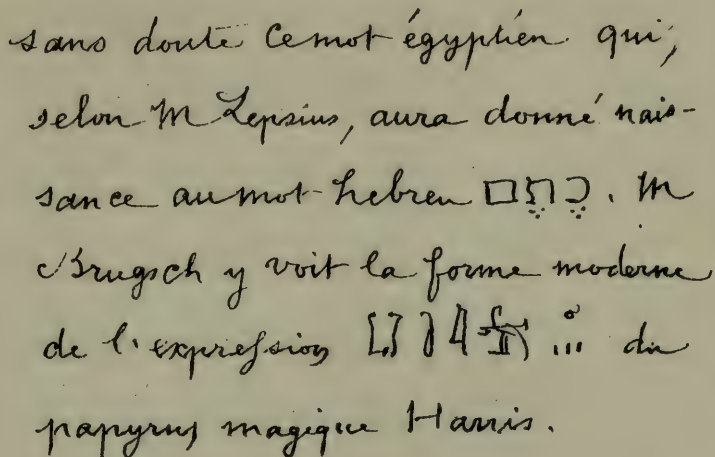 sans doute ce mot égyptien qui,
selon M Lepsius, aura donné nais-
sance au mot hebreu כֶתֶם. M
Brugsch y voit la forme moderne
de l'expression du
papyrus magique Harris.